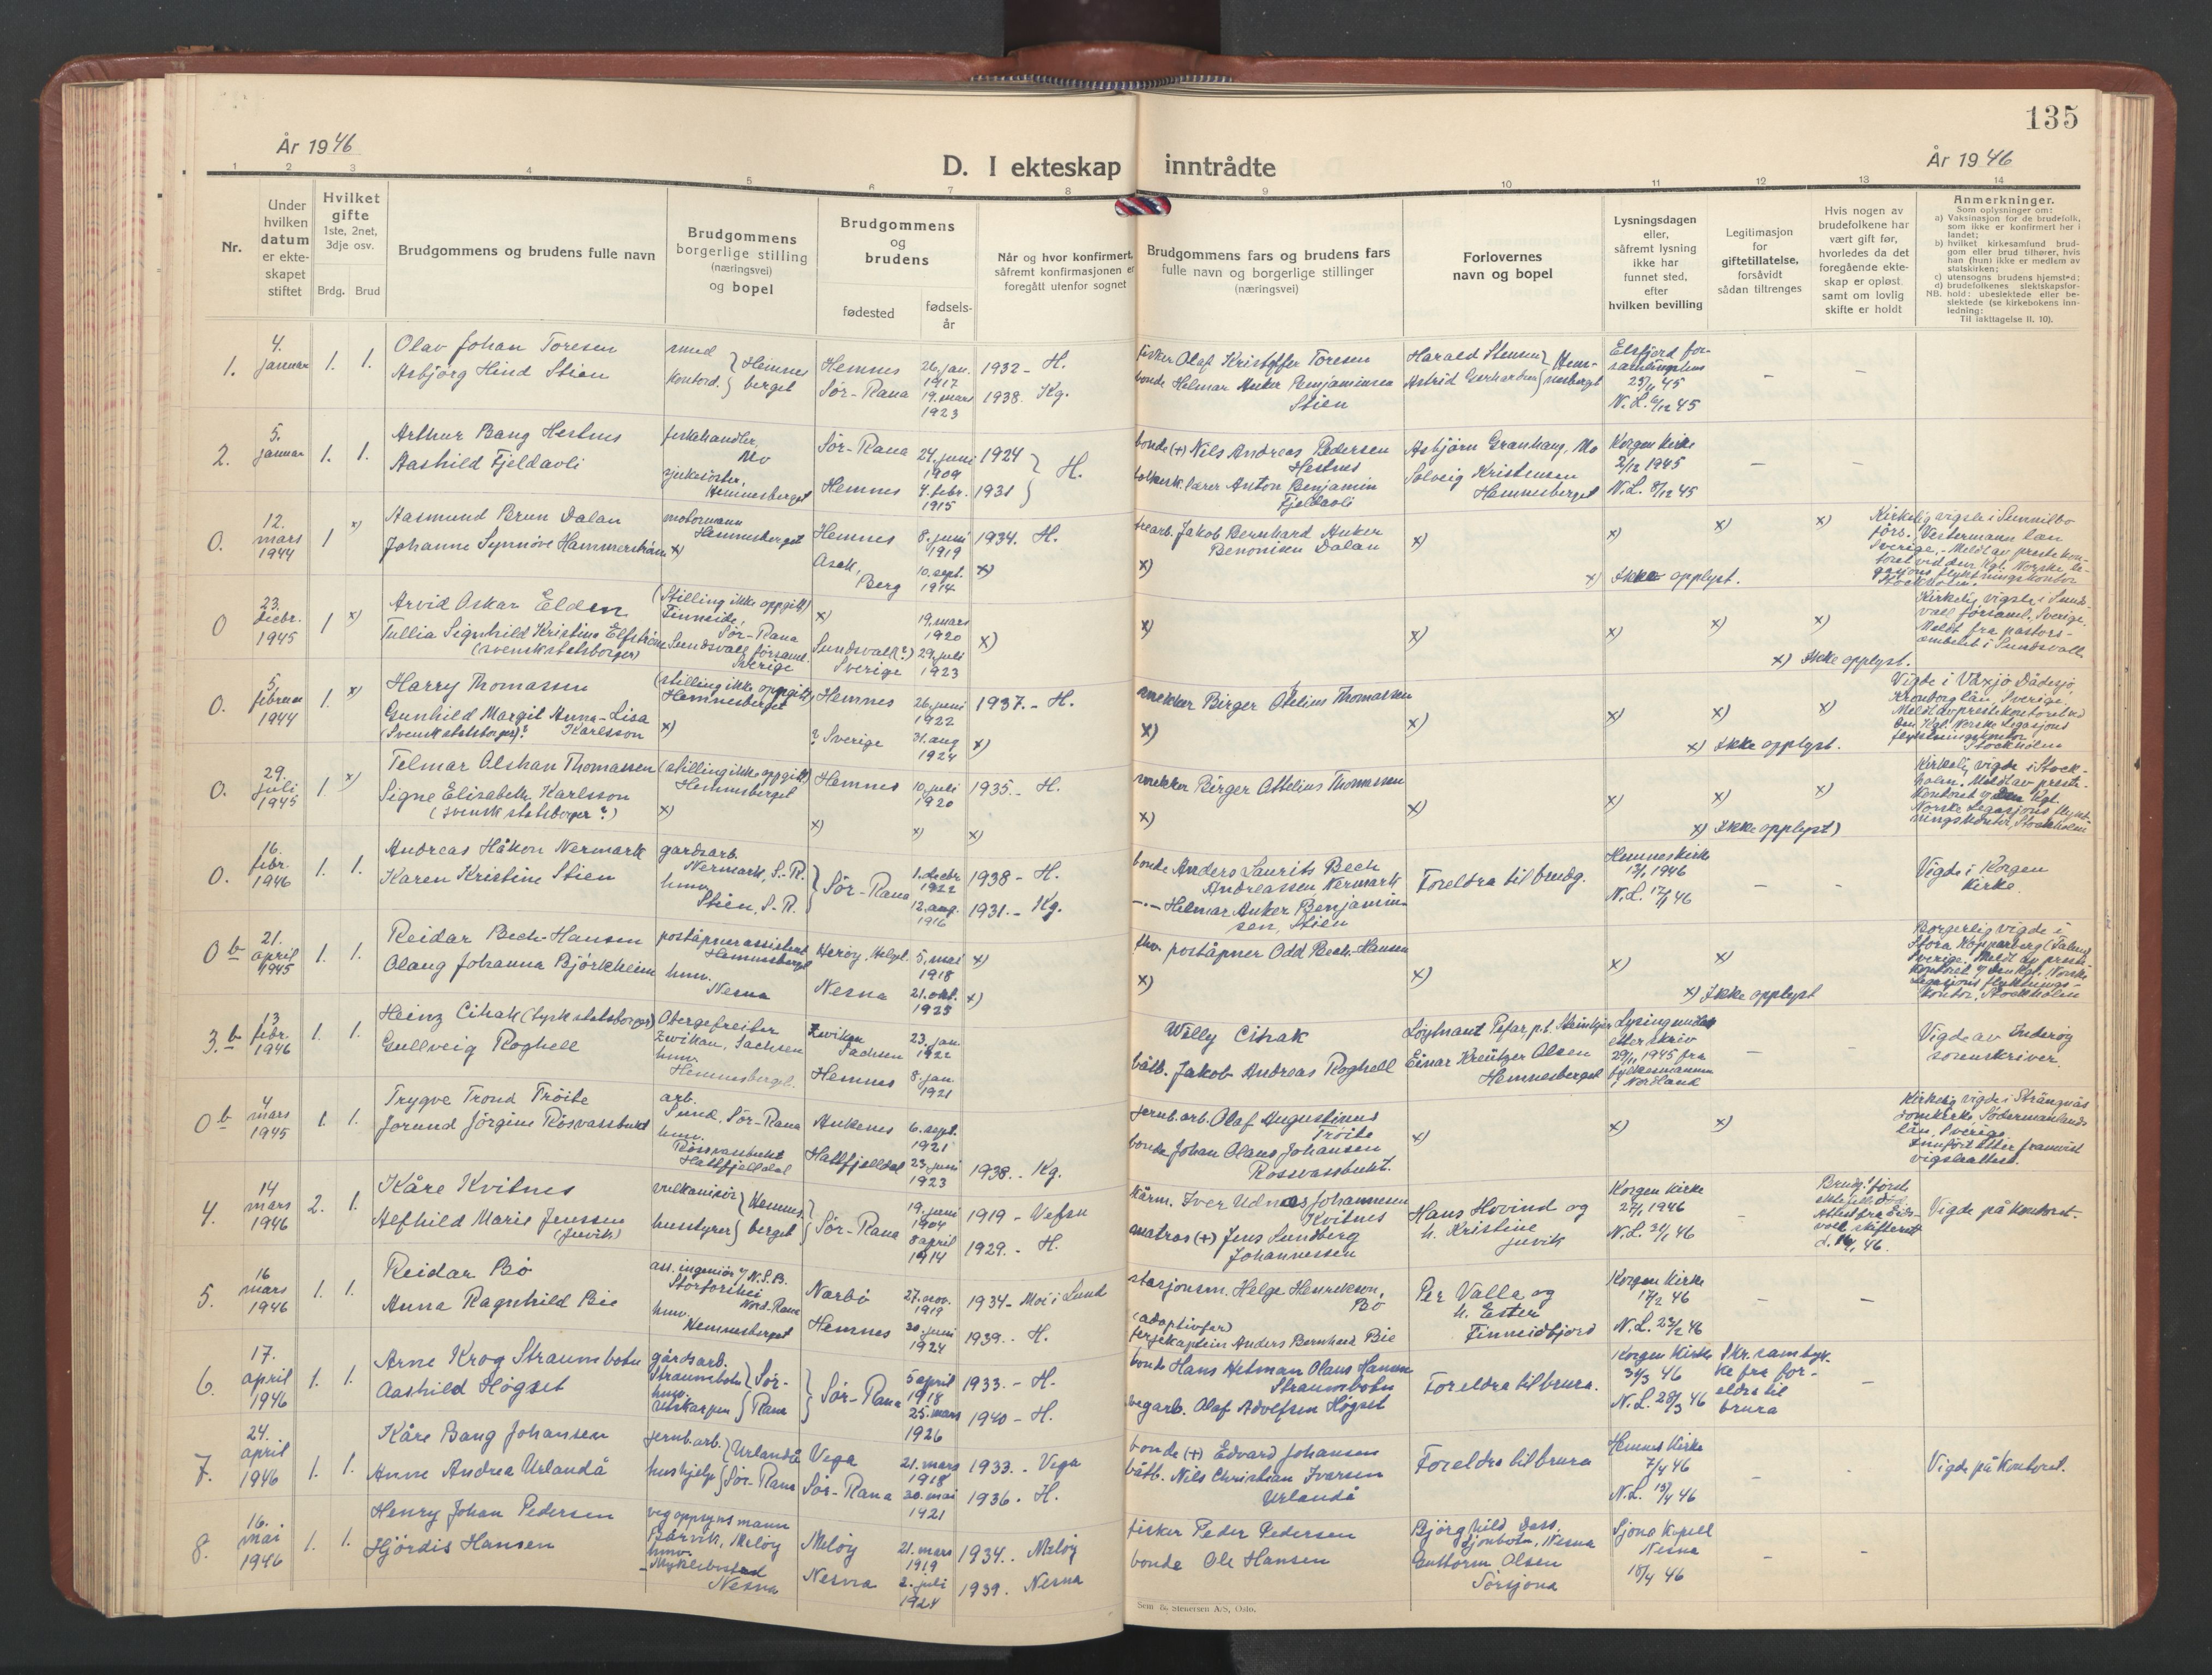 135
År 1946
D. I ekteskap inntrådte
År 1946
1 2 3 4 5 6 7 8 9 10 11 12 13 14
Nr.
Under
hvilken
datum
er ekte-
skapet
stiftet
Hvilket
gifte
1ste, 2net,
3dje osv.
Brdg. Brud
Brudgommens og brudens fulle navn
Brudgommens
borgerlige stilling
(næringsvei)
og bopel
Brudgommens
og
brudens
fødested
fødsels-
år
Når og hvor konfirmert,
såfremt konfirmasjonen er
foregått utenfor sognet
Brudgommens fars og brudens fars
fulle navn og borgerlige stillinger
(næringsvei)
Forlovernes
navn og bopel
Lysningsdagen
eller,
såfremt lysning
ikke har
funnet sted,
efter
hvilken bevilling
Legitimasjon
for
giftetillatelse,
forsåvidt
sådan tiltrenges
Hvis nogen av
brudefolkene har
vært gift før,
hvorledes da det
foregående ekte-
skap er opløst,
samt om lovlig
skifte er holdt
Anmerkninger.
Som oplysninger om:
a) Vaksinasjon for de brudefolk,
som ikke er konfirmert her i
landet;
b) hvilket kirkesamfund brud-
gom eller brud tilhører, hvis
han (hun) ikke er medlem av
statskirken;
c) utensogns brudens hjemsted;
d) brudefolkenes slektskapsfor-
NB. hold: ubeslektede eller be-
slektede (se kirkebokens inn-
ledning:
Til iakttagelse II, 10).
1. 4. januar 1. 1.
Olav Johan Toresen
Asbjørg Hind Stien
smed
kontord. } Hemnes
berget
Hemnes 26. jan. 1917 1932 - H.
Sør-Rana 19. mars 1923 1938. Kg.
fisker Olaf Kristoffer Toresen
bonde Helmar Anker Benjaminsen
Stien
Harald Stensen
Astrid Gerhardsen } Hem-
nesberget
Elsfjord for-
samlingshus
25/11 45
N.L. 6/12 45
– –
2. 5. januar 1. 1.
Arthur Bang Hestnes
Aashild Fjeldavli
fiskehandler,
Mo
sjukesöster,
Hemnesberget
Sør-Rana 24. juni 1909 1924
Hemnes 4. febr. 1915 1931 } H.
bonde (+) Nils Andreas Pedersen
Hestnes
folkesk. lærer Anton Benjamin
Fjeldavli
Asbjörn Granhaug, Mo
Solveig Kristensen
Hemnesberget
Korgen kirke
2/12 1945
N.L. 8/12 45
– –
0. 12. mars 1944 1 x)
Aasmund Brun Dalan
Johanne Synnöve Hammerström
motormann
Hemnesberget
x)
Hemnes 8. juni 1919 1934. H.
Asek,
Berg 10. sept. 1914 x)
trearb. Jakob Bernhard Anker
Benonisen Dalan
x)
x) x) x) x)
x) Ikke opplyst.
Kirkelig vigsle i Sunnilbo
förs. Vestermann län
Sverige. - Meldt av prestekon-
toret ved den Kgl. Norske le-
gasjons flyktningskontor
Stockholm.
0 23. decbr. 1945 1 x)
Arvid Oskar Elden
Tullia Signhild Kristina Elfström
(svensk statsborger)
(Stilling ikke oppgitt)
Finneide,
Sør-Rana
Sundsvall församl.
Sverige
x) 19. mars 1920
Sundsvall (?)
Sverige 29. juli 1923 x)
x) x) x) x) x)
x) Ikke opplyst.
Kirkelig vigsle i Sunds-
vall församl., Sverige.
Meldt fra pastors-
embetet i Sundsvall
0. 5 februar 1944 1. x)
Harry Thomassen
Gunhild Margit Anna-Lisa
(Svensk statsborger)? Karlsson
(stilling ikke oppgitt)
Hemnesberget
x)
Hemnes 26. juni 1922 1937. - H.
? Sverige 31. aug 1924 x)
snekker Birger Otelius Thomassen
x)
x) x) x) x)
x) Ikke opplyst.
Vigde i Växjö Dädesjö,
Kronborg län, Sverige.
Meldt av prestekontoret ved
den Kgl. Norske Legasjons
flyktningskontor
Stockholm
0. 29. juli 1945 1 x)
Telmar Alshan Thomassen
Signe Elisabeth Karlsson
(svensk statsborger ?)
(stilling ikke oppgitt)
Hemnesberget
x)
Hemnes 10. juli 1920 1935. - H.
x) x) x)
snekker Birger Ottelius Thomassen
x)
x) x) x) x)
x) Ikke opplyst)
Kirkelig vigde i Stock-
holm. Meldt av preste-
kontoret v/ Den Kgl.
Norske Legasjons flykt-
ningskontor, Stockholm
0. 16. febr. 1946 1. 1.
Andreas Håkon Nermark
Karen Kristine Stien
gardsarb.
Nermark, S.-R.
hmv.
Stien, S.-R.
Sør-Rana
1. decbr. 1922 1938 - H.
12. aug. 1916 1931. - Kg.
bonde Anders Laurits Bech
Andreassen Nermark
-"- Helmar Anker Benjamin-
sen, Stien
Foreldra til brudg.
Hemnes kirke
13/1 1946
N.L. 17/1 46
– –
Vigde i Korgen
kirke.
0 b 21. april 1945 1. 1.
Reidar Bech-Hansen
Olaug Johanna Björkheim
poståpnerassistent
Hemnesberget
hmv.
Nesna
Herøy, Helgel. 5. mai 1918 x)
Nesna 21. okt. 1925 x)
fhv. poståpner Odd Bech-Hansen
x)
x) x) x)
x) Ikke opplyst
Borgerlig vigde i
Stora Kopparberg (Falun)
Sverige. Meldt av preste-
kontoret v/ Den Kgl. Norske
Legasjons flyktnings-
kontor, Stockholm
3. b 13 febr. 1946 1. 1.
Heinz Cihak (tysk statsborger)
Gullveig Roghell
Obergefreiter
Zwikau, Sachsen
hmv.
Hemnesberget.
Zwikau
Sachsen 23. jan 1922
Hemnes 8. jan. 1921
Willy Cihak
båtb. Jakob Andreas Roghell
Löytnant Pefar, p.t. Steinkjer
Einar Kreützer Olsen
Hemnesberget
Lysing unnlatt
etter skriv
29/11 1945 fra
fylkesmannen
i Nordland
– –
Vigde av Inderøy
sorenskriver.
0 b 4 mars 1945 1. 1.
Trygve Trond Tröite
Jorund Jörgine Rösvassbukt
arb.
Sund, Sør-Rana
hmv.
Rössvassbukt
Hattfjelldal
Ankenes 6. sept. 1921
Hattfjelldal 23. juni 1923 1938. . Kg.
jernb.arb. Olaf Augustinus
Tröite
bonde Johan Olaus Johansen
Rossvassbukt.
x) x) x)
Kirkelig vigde i Strängnäs
domkirke Södermanlands
län, Sverige
Innfört etter framvist
vigselattest.
4. 14 mars 1946 2. 1.
Kåre Kvitnes
Alfhild Marie Jenssen
(Juvik)
vulkanisör
husstyrer } Hemnes-
berget
Sør-Rana
19. juni 1904 1919 - Vefsn
8 april 1914 1929. - H.
kårm. Iver Udnæs Johannesen
Kvitnes
matros (+) Jens Sundberg
Johannessen
Hans Hovind og
h. Kristine
Juvik
Korgen kirke
27/1 1946
N.L. 31/1 46
–
Brudg.s förste
ektefelle död.
Attest fra Eids-
voll skifterett
d. 16/1 46.
Vigde på kontoret.
5. 16 mars 1946 1. 1.
Reidar Bö
Anna Ragnhild Bie
ass. ingeniör v/ N.S.B.
Storforshei
Nord-Rana
hmv.
Hemnesberget
Narbö 27. nov. 1919 1934 - Moi i Lund
Hemnes 30. juni 1924 1939. . H.
stasjonsm. Helge Henrikson,
Bö
(adoptivfar)
ferjekaptein Anders Bernhard Bie
Per Valla og
h. Ester
Finneidfjord
Korgen kirke
17/2 46
N.L. 23/2 46
– –
6. 17. april 1946 1. 1.
Arne Krog Straumbotn
Aashild Högset
gårdsarb.
Straumbotn
hmv.
Altskarpen } Sør-
Rana
Sør-Rana
5 april 1918 1933. - H.
25. mars 1926 1940 - H.
bonde Hans Hetman Olaus Hansen
Straumbotn
vegarb. Olaf Adolfsen Högset
Foreldra til brura.
Korgen kirke
3/3 46
N.L. 28/3 46
Skr. samtyk-
ke fra for-
eldra til
brura
–
7. 24. april 1946 1. 1.
Kåre Bang Johansen
Anne Andrea Urlandå
jernb.arb.
hushjelp } Urlandå
Sør-Rana
Vega 21. mars 1918 1933. . Vega
Sør-Rana 20. mai 1921 1936. H.
bonde (+) Edvard Johansen
båtb. Nils Christian Iversen
Urlandå
Foreldra til brura
Hemnes kirke
7/4 46
N.L. 13/4 46
– –
Vigde på kontoret.
8. 16. mai 1946 1. 1.
Henry Johan Pedersen
Hjördis Hansen
vegoppsynsmann
Bårvik, Melöy
hmv.
Myklebustad
Nesna
Melöy 21. mars 1919 1934. . Melöy
Nesna 2. juli 1924 1939. Nesna
fisker Peder Pedersen
bonde Ole Hansen
Björghild Dass,
Sjonbotn, Nesna
Guttorm Olsen
Sörsjona
Sjona kapell
Nesna
18/4 46
– –
Sem & Stenersen A/S, Oslo.